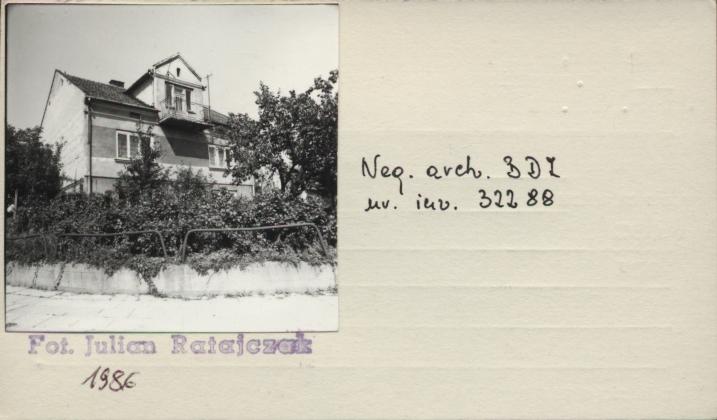 Neg. arch. BDZ
nr. inv. 32288
Fot. Julian Ratajczak
1986